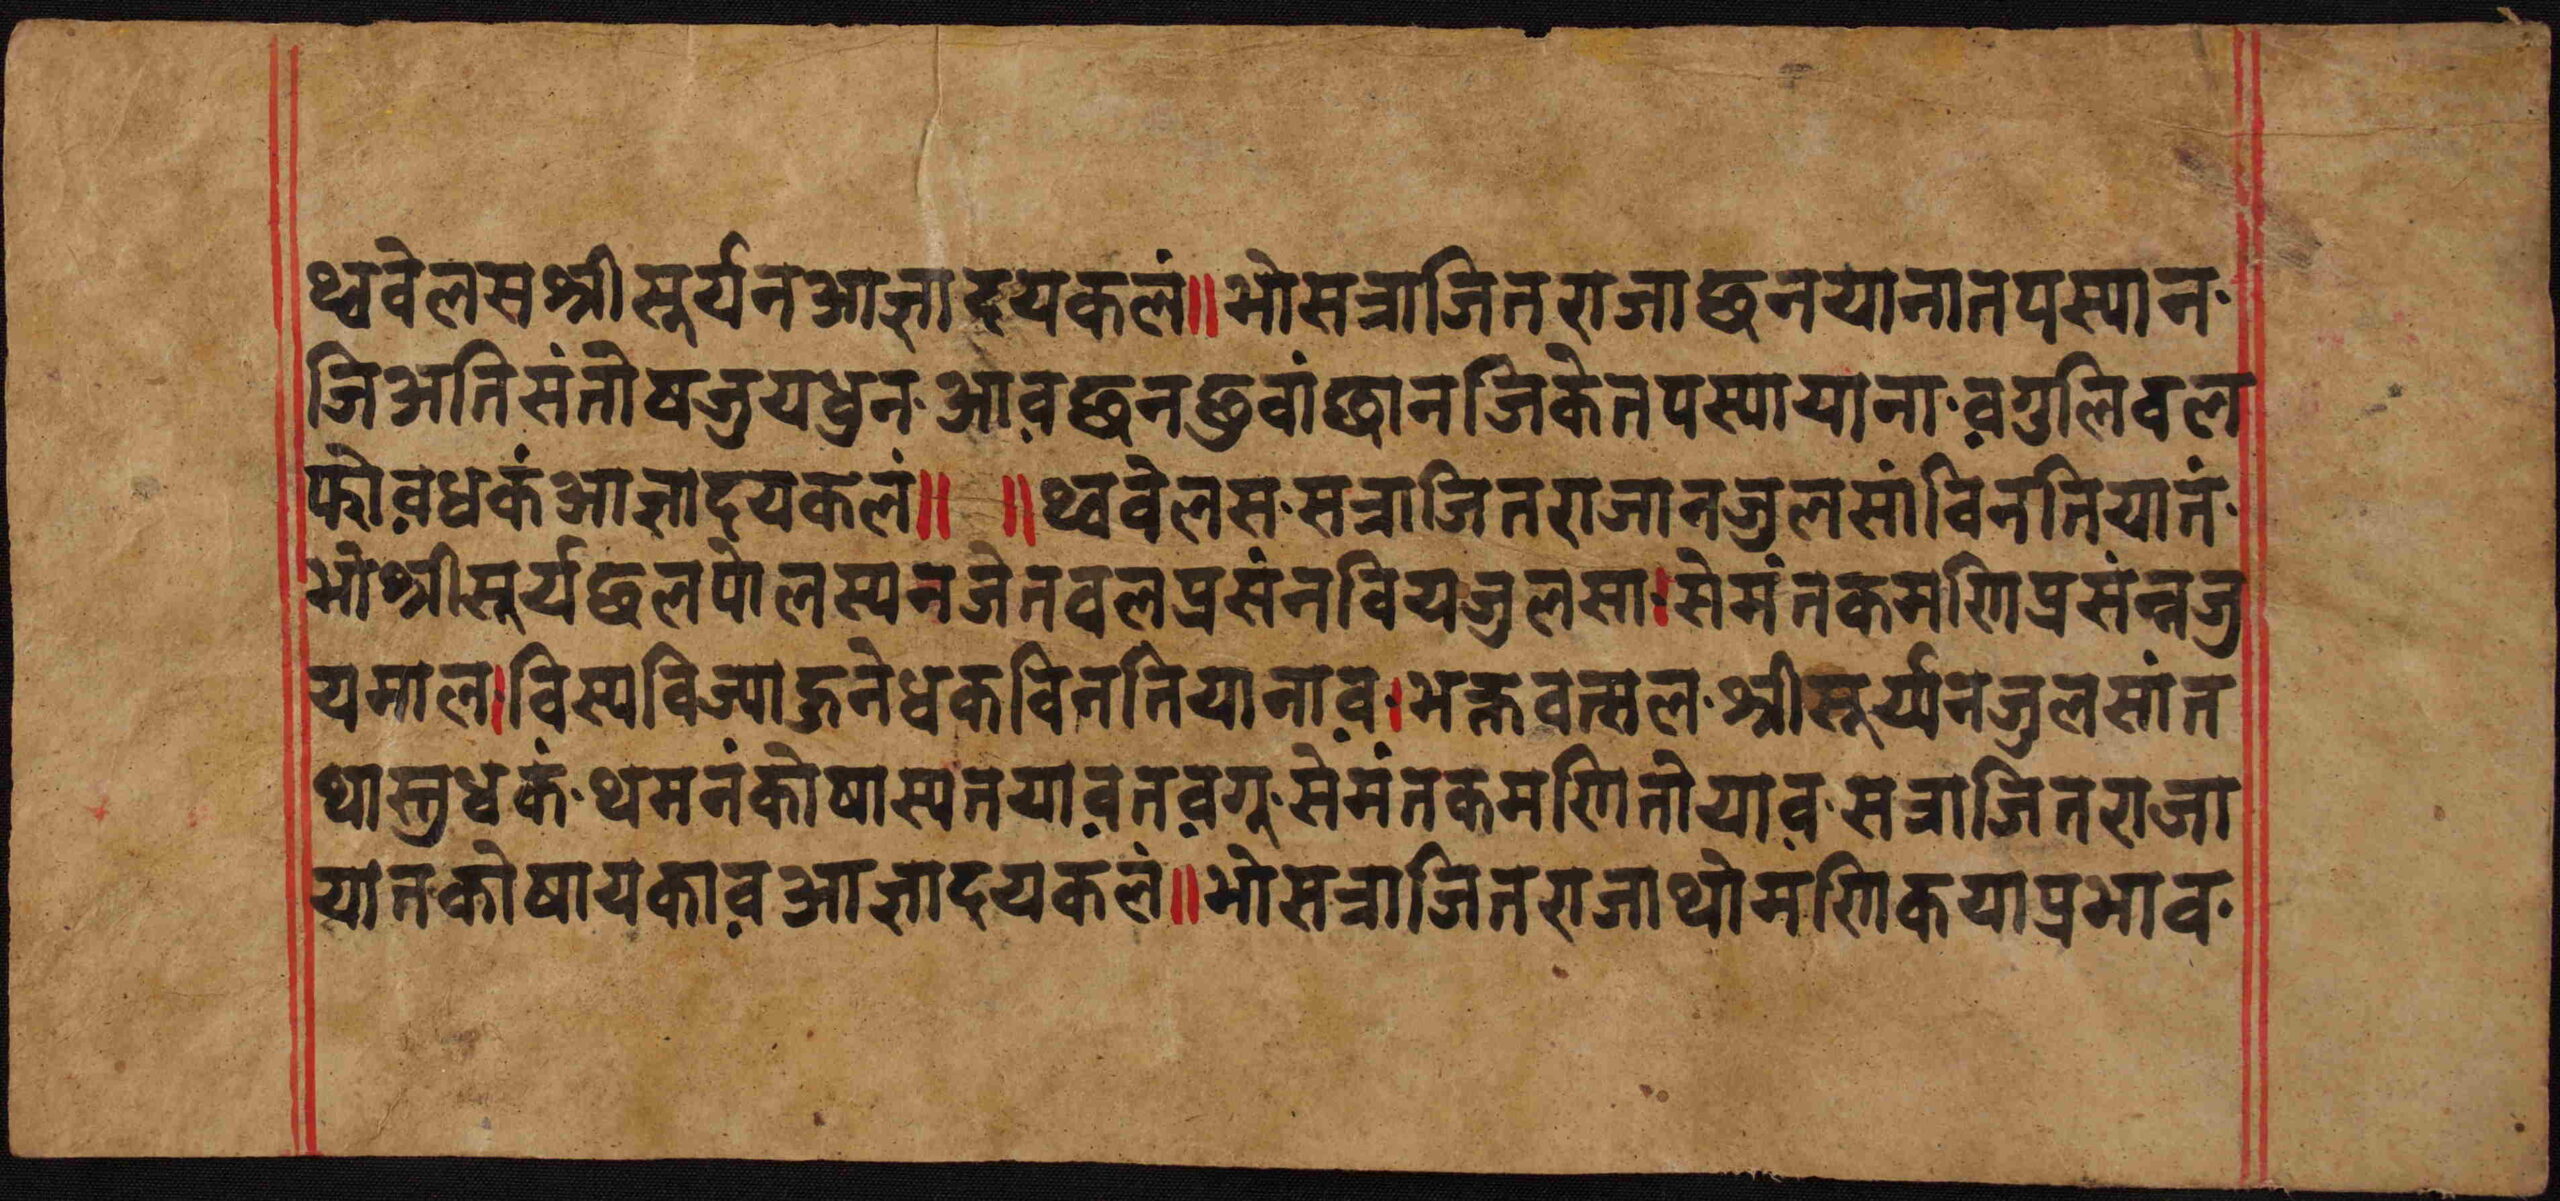 थ्ववेलसश्रीसूर्यनआज्ञादयकलं॥भोसत्राजितराजाछनयानातपस्यान·
जिअतिसंतोषजुयधुन·आव़छनछुवांछानजिकेतपस्यायाना·व़गुलिवल
फोव़धकंआज्ञादयकलं॥ ॥थ्ववेलस·सत्राजितराजानजुलसांविनतियातं·
भोश्रीसूर्यछलपोलस्यनजेतवलप्रसंनवियजुलसा।सेमंतकमणिप्रसंन्नजु
यमाल।विस्यविज्याहुनेधकविनतियानाव़।भक्तवत्सल·श्रीसूर्य्यनजुलसांत
थास्तुधकं·थमनंकोषास्यतयाव़तव़गू·सेमंतकमणितोयाव·सत्राजितराजा
यातकोषायकाव़आज्ञादयकलं॥भोसत्राजितराजाथोमंणिकयाप्रभाव·